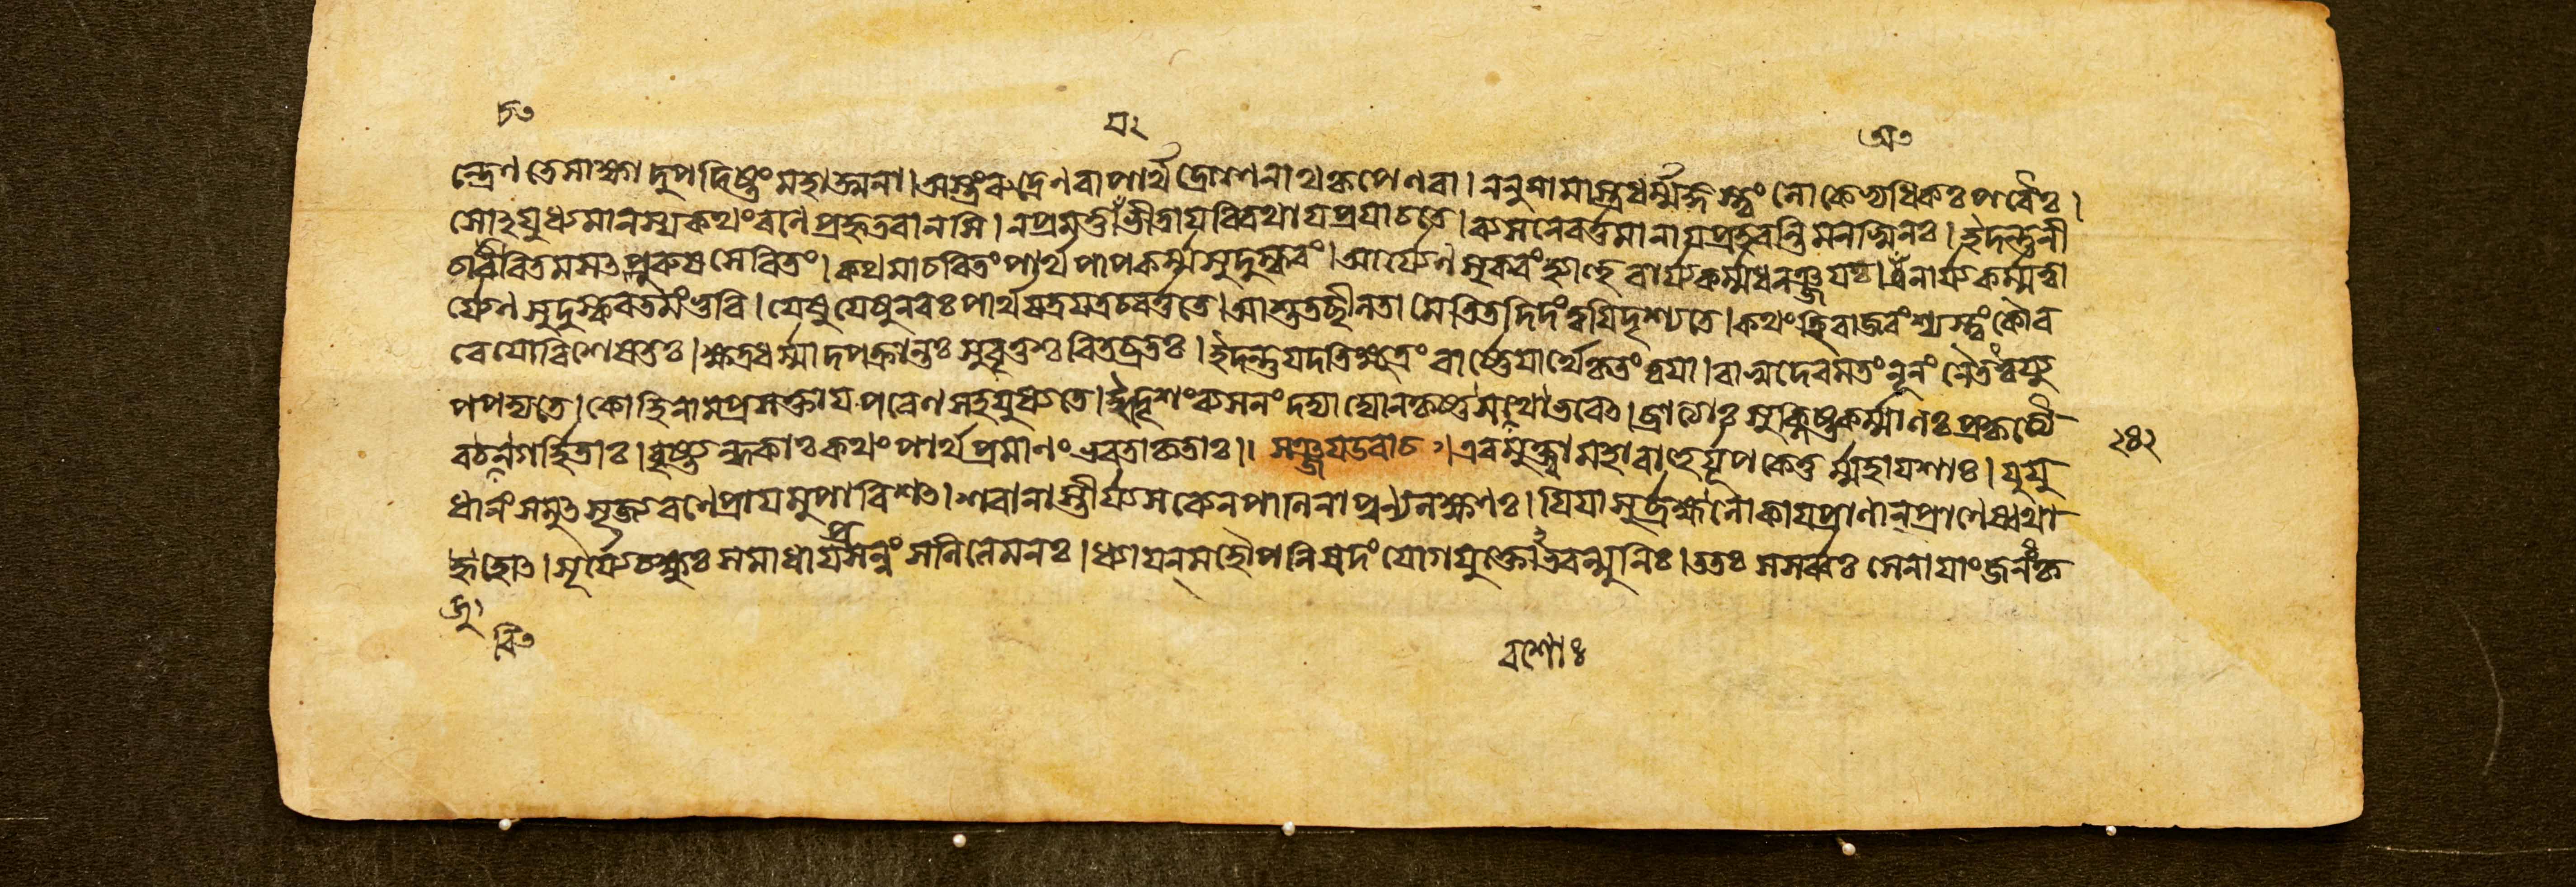 চ৩ য২ অ৩
ন্দ্রেণ তে সাক্ষাদুপদিষ্টং মহাত্মনা। অস্ত্রং রুদ্রেণ বা পার্থ দ্রোণেনাথ কৃপেণ বা। ননু নামাস্ত্রধর্ম্মজ্ঞস্ত্বং লোকেভ্যধিকঃ পরৈঃ।
সোঽযুধ্যমানস্য কথং রণে প্রহৃতবানসি। ন প্রমত্তায ভীতায বিরথায প্রযাচতে। ব্যসনে বর্ত্তমানায প্রহরন্তি মনস্বিনঃ। ইদন্তু নী
চাচরিতমসৎপুরুষসেবিতং। কথমাচরিতং পার্থ পাপকর্ম্ম সুদুষ্করং। আর্য্যেণ সুকরং হ্যাহুরার্য্যকর্ম্ম ধনঞ্জয। অনার্য্যকর্ম্ম ত্বা
র্য্যেণ সুদুষ্করতমং ভুবি। যেষু যেষু নরঃ পার্থ যত্র যত্র চ বর্ত্ততে। আশু তচ্ছীলতামেতি তদিদং ত্বযি দৃশ্যতে। কথং হি রাজবংশ্যস্ত্বং কৌর
বেযো বিশেষতঃ। ক্ষত্রধর্ম্মাদপক্রান্তঃ সুবৃত্তশ্চরিতব্রতঃ। ইদন্তু যদতিক্ষুদ্রং বার্ষ্ণেযার্থে কৃতং ত্বযা। বাসুদেবমতং নূনং নৈতত্ত্বয্যু
পপদ্যতে। কো হি নাম প্রমত্তায পরেণ সহ যুধ্যতে। ঈদৃশং ব্যসনং দদ্যাদ্যো ন কৃষ্ণসখো ভবেৎ। ব্রাত্যাঃ সংক্লিষ্টকর্ম্মাণঃ প্রকৃত্যৈ
ব চ গর্হিতাঃ। বৃষ্ণ্যন্ধকাঃ কথং পার্থ প্রমাণং ভবতা কৃতাঃ।। সঞ্জয উবাচ। এবমুক্ত্বা মহাবাহুর্যূপকেতুর্ম্মহাযশাঃ। যুযু
২৪২
ধানং সমুৎসৃজ্য রণে প্রাযমুপাবিশৎ। শরানাস্তীর্য্য সব্যেন পাণিনা পুণ্যলক্ষণঃ। যিযাসুর্ব্রহ্মলোকায প্রাণান্ প্রাণেষ্বথা
জুহোৎ। সূর্য্যে চক্ষুঃ সমাধায প্রসন্নং সলিলে মনঃ। ধ্যাযন্ মহোপনিষদং যোগযুক্তোঽভবন্মুনিঃ। ততঃ স সর্ব্বঃ সেনাযাং জনঃ কৃ
জু১
বি৩ বশোঃ